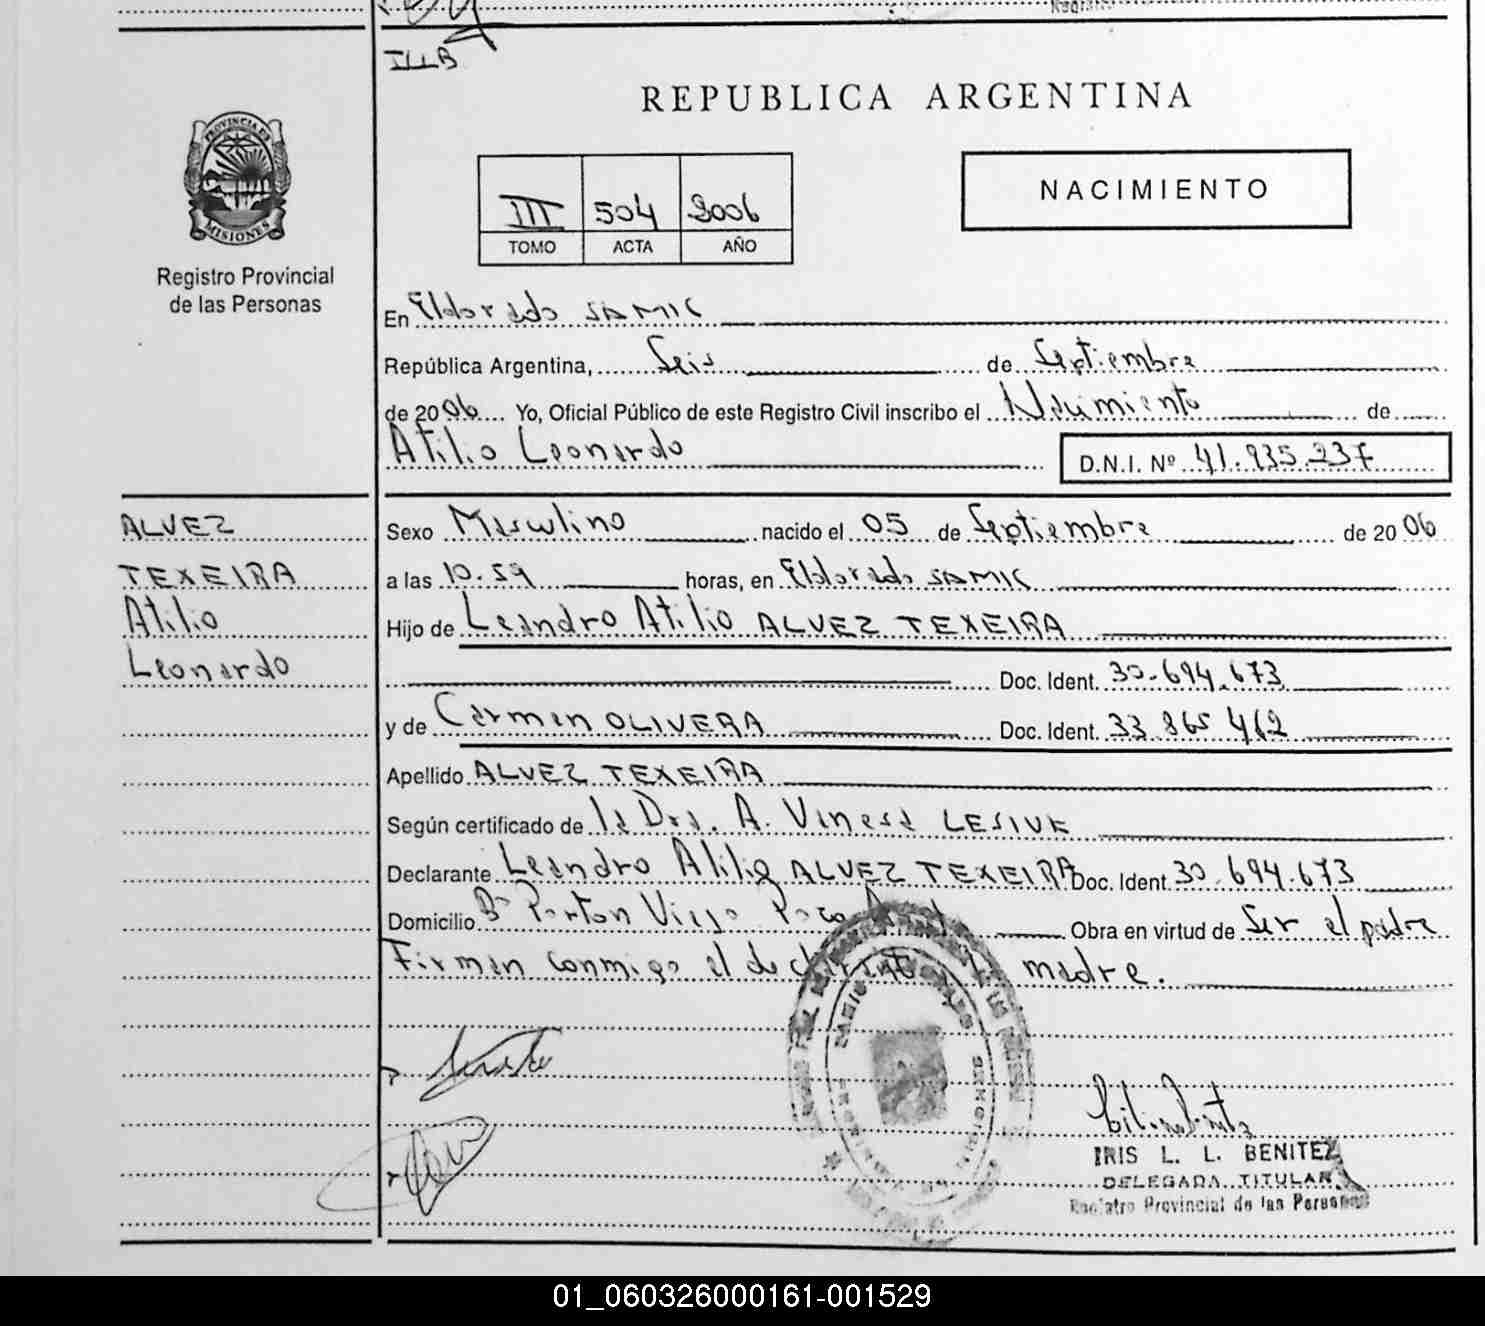 ILLB
REPUBLICA ARGENTINA
PROVINCIA DE
MISIONES
Registro Provincial
de las Personas
III 504 2006
TOMO ACTA AÑO
NACIMIENTO
En Eldorado SAMIC
República Argentina, Seis de Septiembre
de 2006 Yo, Oficial Público de este Registro Civil inscribo el Nacimiento de
Atilio Leonardo D.N.I. Nº 41.935.237
ALVEZ
TEXEIRA
Atilio
Leonardo
Sexo Masculino nacido el 05 de Septiembre de 2006
a las 10.59 horas, en Eldorado SAMIC
Hijo de Leandro Atilio ALVEZ TEXEIRA
Doc. Ident. 30.694.673
y de Carmen OLIVERA Doc. Ident. 33.865.462
Apellido ALVEZ TEXEIRA
Según certificado de la Dra. A. Vanesa LESIUK
Declarante Leandro Atilio ALVEZ TEXEIRA Doc. Ident. 30.694.673
Domicilio Bº Porton Viejo Pozo Obra en virtud de Ser el padre
Firman conmigo el declarante la madre.
IRIS L. L. BENITEZ
DELEGADA TITULAR
Registro Provincial de las Personas
01_060326000161-001529